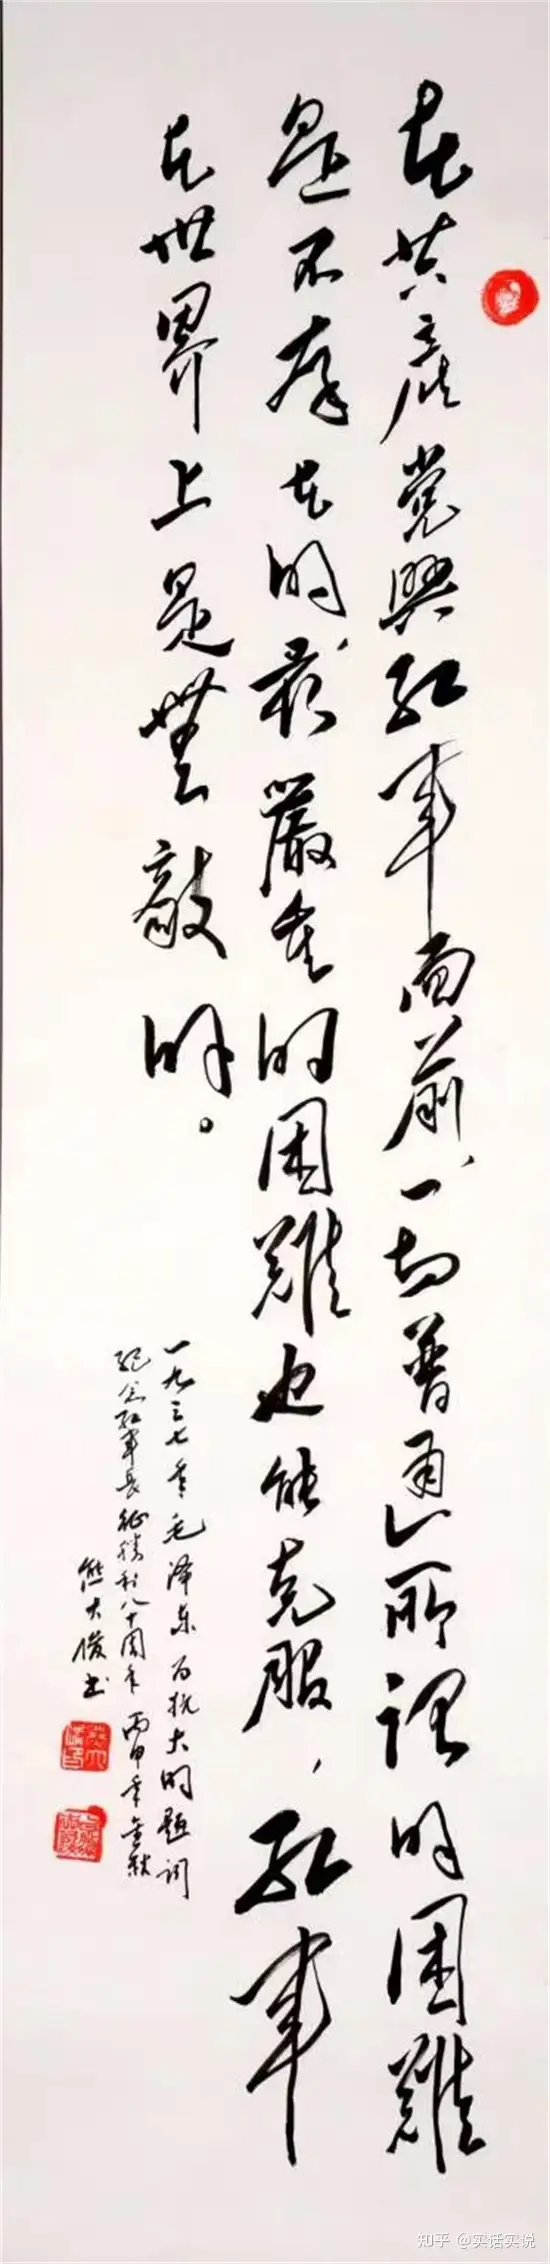 在共产党與红军面前、一切普通所谓的困難
是不存在的、最嚴重的困難也能克服，红军
在世界上是無敵的。
一九三七年毛泽东为抗大的题词
纪念红军长征勝利八十周年 丙申年金秋
熊大俊书
知乎 @实话实说